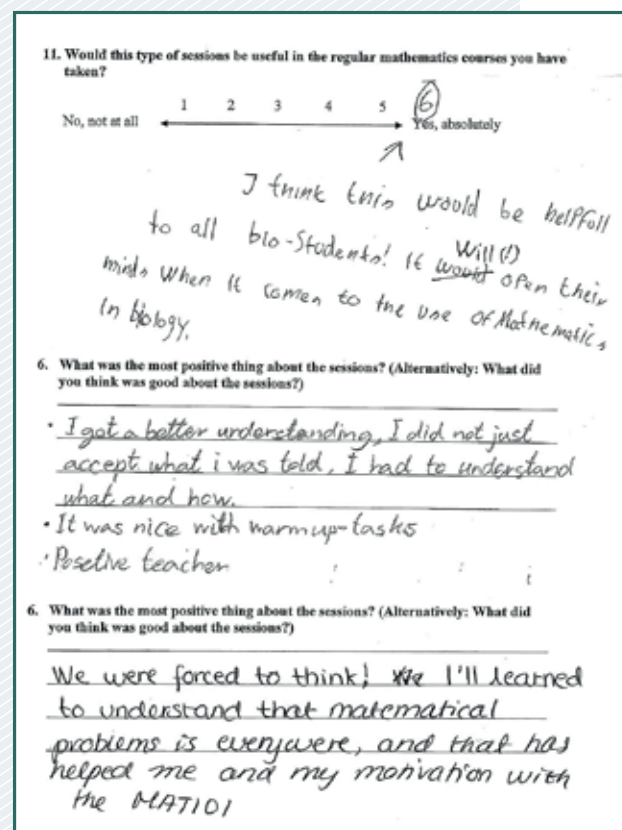 11. Would this type of sessions be useful in the regular mathematics courses you have
taken?
1 2 3 4 5 6
No, not at all Yes, absolutely
I think this would be helpfull
to all bio-Students! It would Will (!) open their
minds when it comes to the use of Mathematics
in biology.
6. What was the most positive thing about the sessions? (Alternatively: What did
you think was good about the sessions?)
• I got a better understanding, I did not just
accept what i was told, I had to understand
what and how.
• It was nice with warmup-tasks
• Posetive teacher
6. What was the most positive thing about the sessions? (Alternatively: What did
you think was good about the sessions?)
We were forced to think! We I'll learned
to understand that matematical
problems is everywere, and that has
helped me and my motivation with
the MAT101